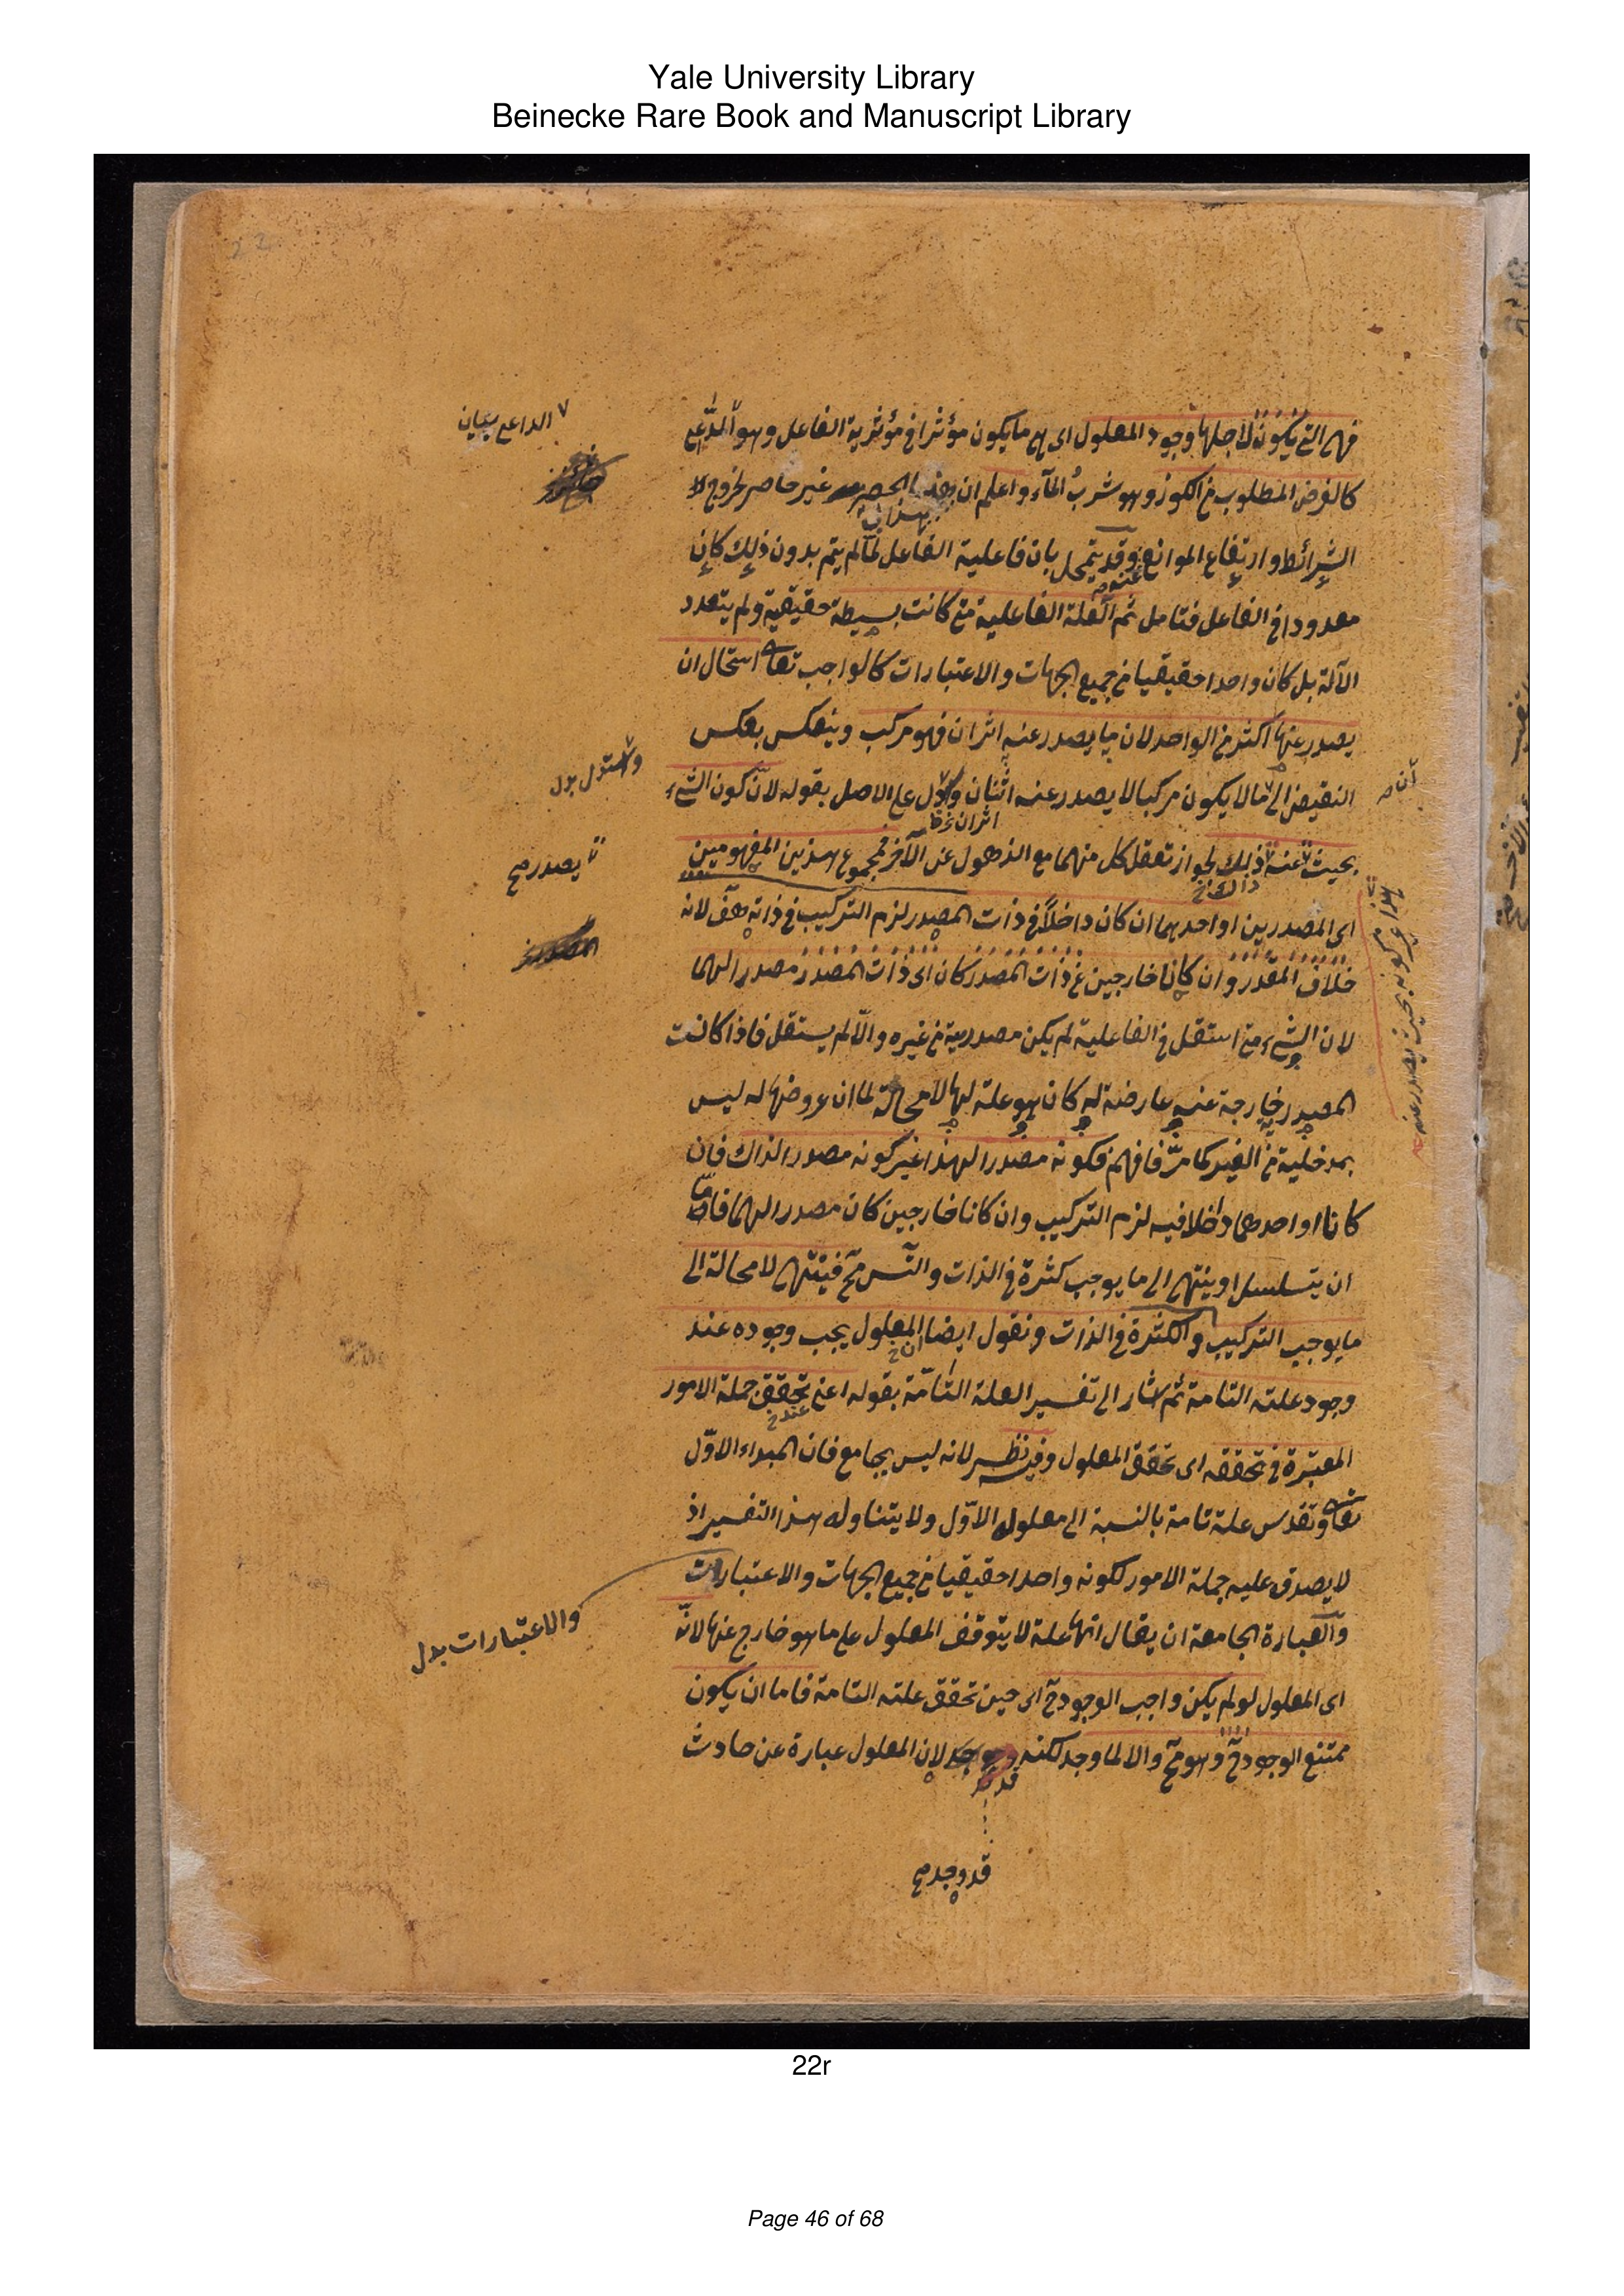 Yale University Library
Beinecke Rare Book and Manuscript Library
فهى التى يكون لاجلها وجود المعلول اى هى ما يكون مؤثرا فى مؤثرية الفاعل وهو الداعى
الداعى بيان
كالغرض المطلوب من الكوز وهو شرب الماء واعلم ان هذا الحصر غير حاصر لخروج
الشرائط وارتفاع الموانع عنه وقد يتمحل بان فاعلية الفاعل لما لم يتم بدون ذلك كان
معدودا فى الفاعل فتامل ثم العلة الفاعلية متى كانت بسيطة حقيقية ولم يتعدد
الآلة بل كان واحدا حقيقيا من جميع الجهات والاعتبارات كالواجب تعالى استحال ان
يصدر عنها اكثر من الواحد لان ما يصدر عنه اثران فهو مركب وينعكس بعكس
النقيض الى ما لا يكون مركبا لا يصدر عنه اثنان ودل على الاصل بقوله لان كون الشىء
واستدل بدل
اثران
بحيث عنه ذلك لجواز تعقل كل منهما مع الذهول عن الآخر فمجموع هذين المفهومين
يصدر صح
اى المصدرين او احدهما ان كان داخلا فى ذات المصدر لزم التركيب فى ذاته هف لانه
خلاف المقدر وان كانا خارجين عن ذات المصدر كان اى ذات المصدر مصدرا لهما
لان الشىء متى استقل فى الفاعلية لم يكن مصدرية من غيره والا لم يستقل فاذا كانت
المصدر خارجة عنه عارضة له كان هو علة لها لا محالة لما ان عروضها له ليس
بمدخلية من الغير كما مر فافهم فكونه مصدرا لهذا غير كونه مصدرا لذاك فان
كانا او احدهما داخلا فيه لزم التركيب وان كانا خارجين كان مصدرا لهما فاما
ان يتسلسل او ينتهى الى ما يوجب كثرة فى الذات والتس مح فينتهى لا محالة الى
ما يوجب التركيب والكثرة فى الذات ونقول ايضا المعلول يجب وجوده عند
وجود علته التامة ثم اشار الى تفسير العلة التامة بقوله اعنى تحقق جملة الامور
المعتبرة فى تحققه اى تحقق المعلول وفيه نظر لانه ليس بجامع فان المبداء الاول
تعالى وتقدس علة تامة بالنسبة الى معلوله الاول ولا يتناوله هذا التفسير اذ
لا يصدق عليه جملة الامور لكونه واحدا حقيقيا من جميع الجهات والاعتبارات
والاعتبارات بدل
والعبارة الجامعة ان يقال انها علة لا يتوقف المعلول على ما هو خارج عنها لانه
اى المعلول لو لم يكن واجب الوجود ح اى حين تحقق علته التامة فاما ان يكون
ممتنع الوجود ح وهو مح والا لما وجد لكنه لان المعلول عبارة عن حادث
قد وجد صح
22r
Page 46 of 68